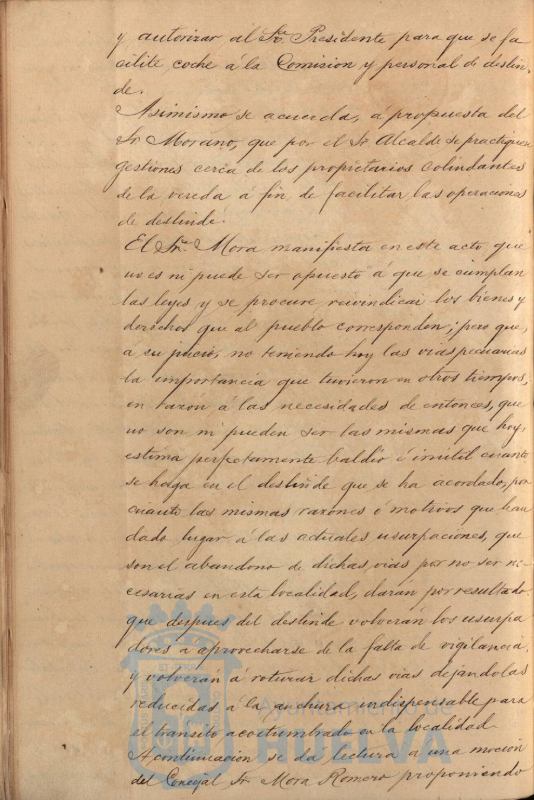 y autorizar al Sr. Presidente para que se fa
cilite coche á la Comision y personal de deslin
de.
Asimismo se acuerda, á propuesta del
Sr Morano, que por el Sr Alcalde se practiquen
gestiones cerca de los propietarios colindantes
de la vereda á fin de facilitar las operaciones
de deslinde.
El Sr. Mora manifiesta en este acto, que
no es ni puede ser opuesto á que se cumplan
las leyes y se procure reivindicar los bienes y
derechos que al pueblo corresponden; pero que,
á su juicio, no teniendo hoy las vias pecuarias
la importancia que tuvieron en otros tiempos,
en razón á las necesidades de entonces, que
no son ni pueden ser las mismas que hoy,
estima perfectamente baldío é inutil cuanto
se haga en el deslinde que se ha acordado, por
cuanto las mismas razones ó motivos que han
dado lugar á las actuales usurpaciones, que
son el abandono de dichas vias por no ser ne
cesarias en esta localidad, darán por resultado
que despues del deslinde volverán los usurpa
dores á aprovecharse de la falta de vigilancia,
y volverán á roturar dichas vias dejandolas
reducidas á la anchura indispensable para
el transito acostumbrado en la localidad
A continuacion se da lectura a una moción
del Concejal Sr Mora Romero proponiendo
Ayuntamiento de
HUELVA